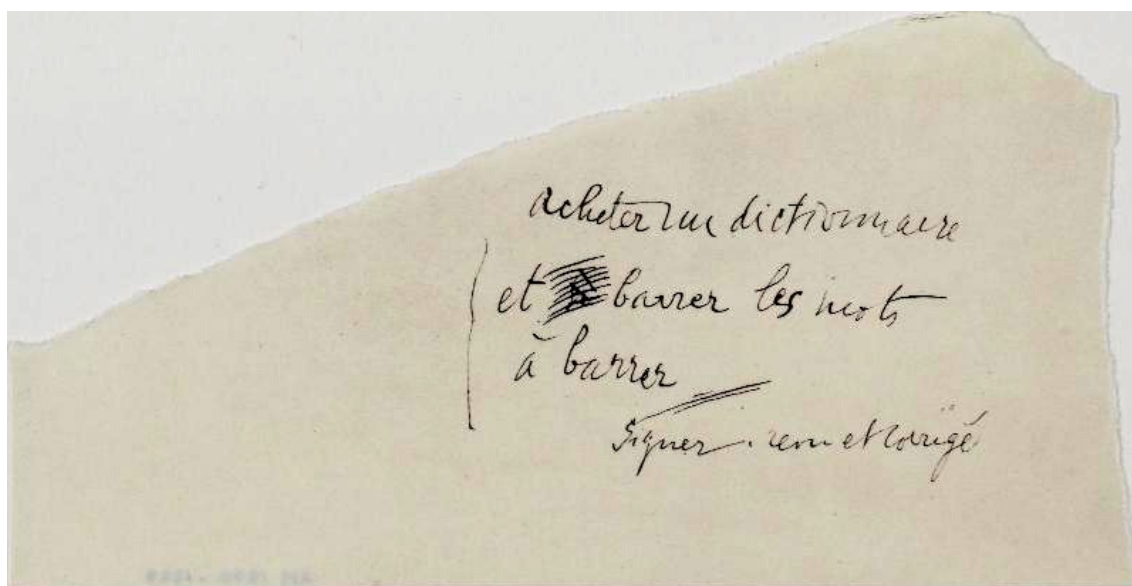 acheter un dictionnaire
et barrer les mots
à barrer
signer. revu et corrigé